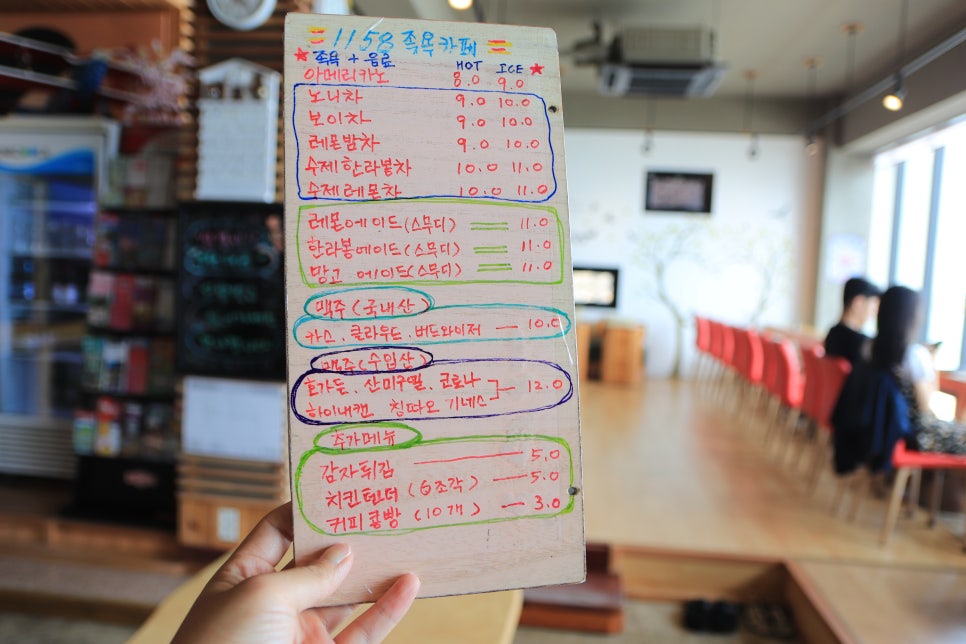 1158 족욕카페
족욕 + 음료 HOT ICE
아메리카노 8.0 9.0
노니차 9.0 10.0
보이차 9.0 10.0
레몬밤차 9.0 10.0
수제한라봉차 10.0 11.0
수제레몬차 10.0 11.0
레몬에이드(스무디) 11.0
한라봉에이드(스무디) 11.0
망고 에이드(스무디) 11.0
맥주(국내산)
카스. 클라우드. 버드와이저 — 10.0
맥주(수입산)
호가든. 산미구엘. 코로나
하이네캔 칭따오 기네스 — 12.0
추가메뉴
감자튀김 — 5.0
치킨텐더 (6조각) — 5.0
커피콩빵 (10개) — 3.0